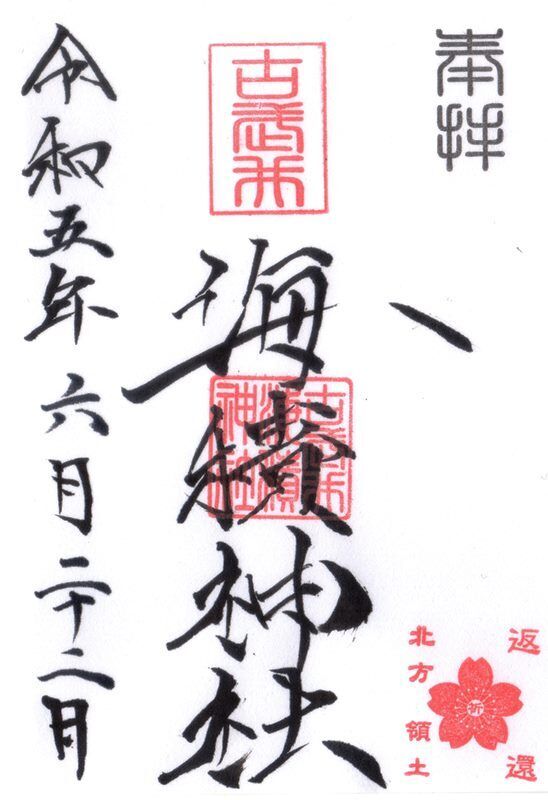 奉拝
古武井
海積神社
古武井
海積
神社
令和五年 六月 二十二日
返還
祈
北方領土